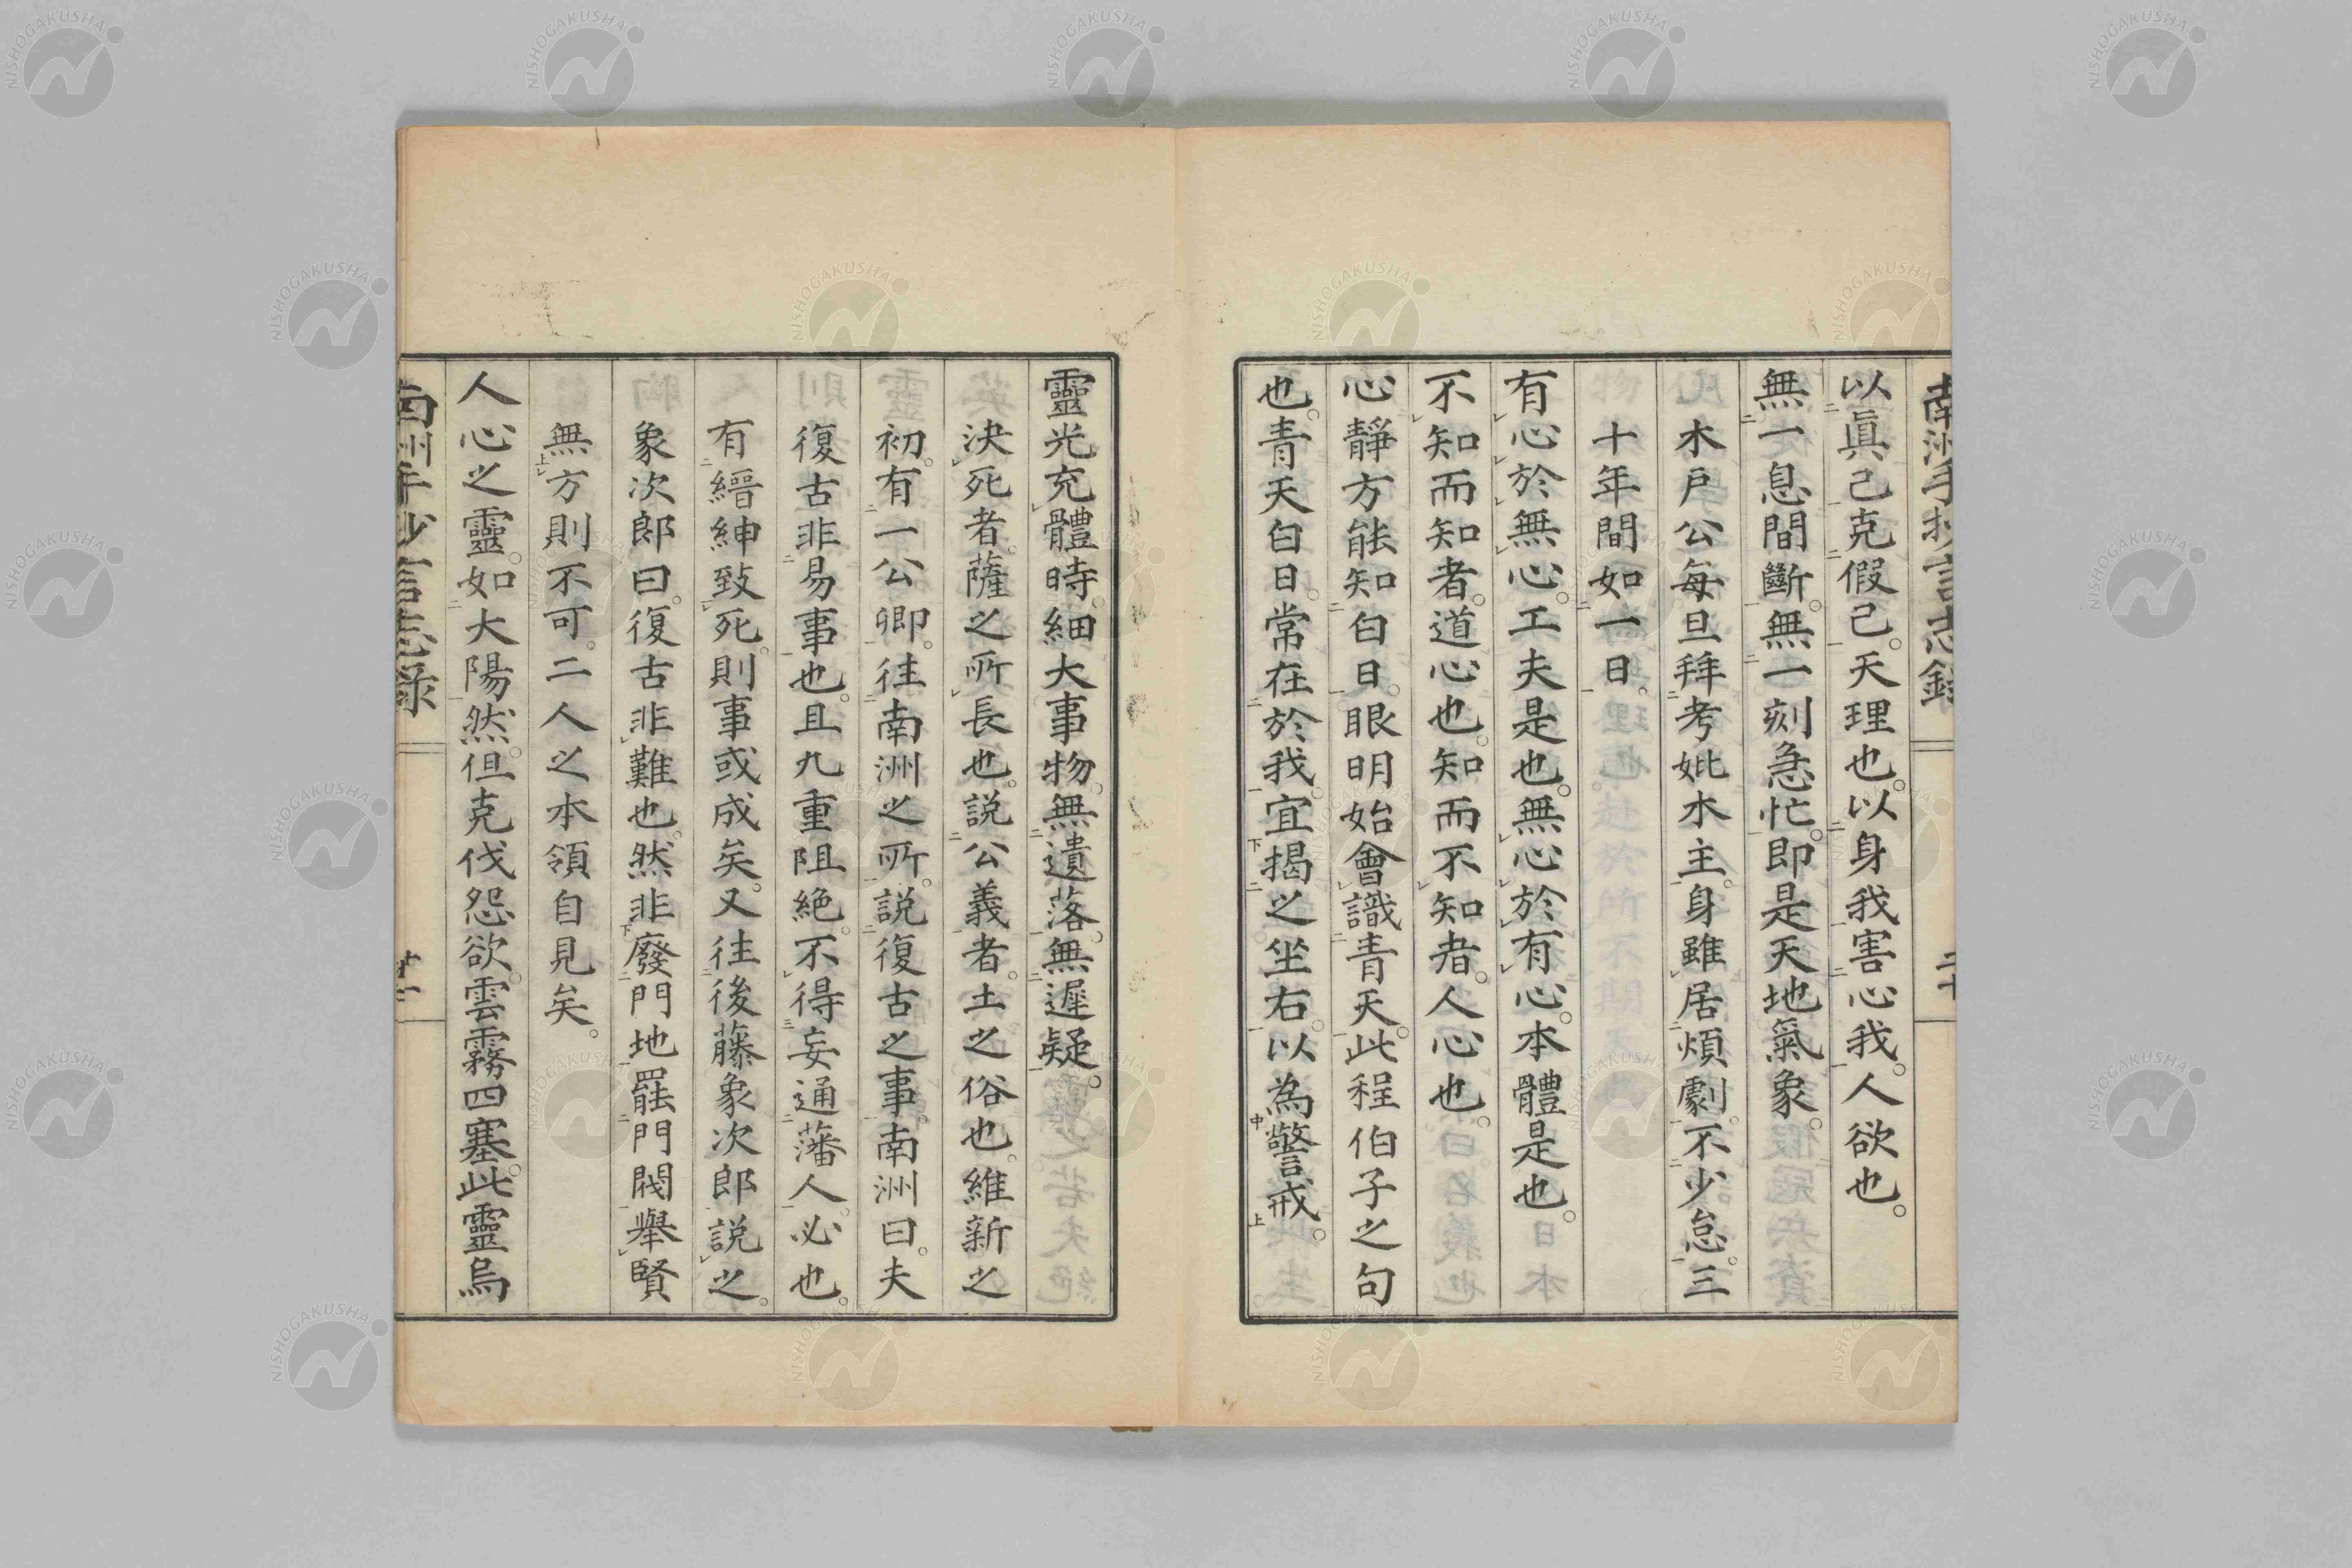 南洲手抄言志録
二十
以眞己克假己。天理也。以身我害心我。人欲也。
無一息間斷。無一刻急忙。即是天地氣象。
木戸公毎旦拜考妣木主。身雖居煩劇。不少怠。三
十年間如一日。
有心於無心。工夫是也。無心於有心。本體是也。
不知而知者。道心也。知而不知者。人心也。
心靜方能知白日。眼明始會識青天。此程伯子之句
也。青天白日。常在於我。宜揭之坐右。以為警戒。
靈光充體時。細大事物。無遺落。無遲疑。
決死者。薩之所長也。説公義者。土之俗也。維新之
初。有一公卿。往南洲之所。説復古之事。南洲曰。夫
復古非易事也。且九重阻絶。不得妄通藩人。必也。
有縉紳致死。則事或成矣。又往後藤象次郎説之。
象次郎曰。復古非難也。然非廢門地罷門閥舉賢
無方則不可。二人之本領自見矣。
人心之靈。如大陽然。但克伐怨欲。雲霧四塞。此靈烏
南洲手抄言志録
廿一
NISHOGAKUSHA